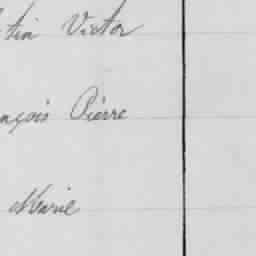 tin Victor
nçois Pierre
Marie